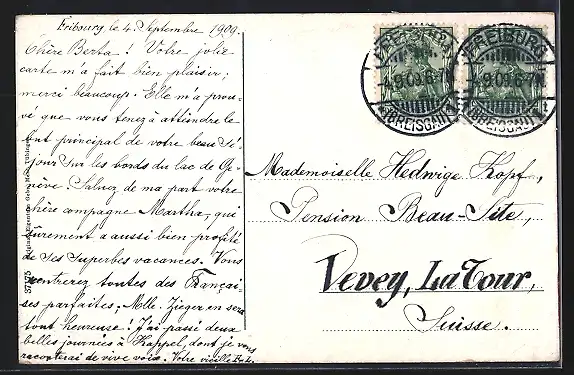 Fribourg, le 4. Septembre 1909.
Chère Berta! Votre jolie
carte m'a fait bien plaisir;
merci beaucoup. Elle m'a prou-
vé que vous tenez à atteindre le
but principal de votre beau Sé-
jour sur les bords du lac de Ge-
nève. Saluez de ma part votre
chère compagne Martha, qui
sûrement a aussi bien profité
de ses superbes vacances. Vous
rentrerez toutes des Françai-
ses parfaites; Mlle. Zieger en sera
tout heureuse! J'ai passé deux
belles journées à Kappel, dont je vous
raconterai de vive voix. Votre vieille
37175
FREIBURG
4.9.09.6-7N
(BREISGAU)
FREIBURG
4.9.09.6-7N
(BREISGAU)
Mademoiselle Hedwige Kopf,
Pension Beau-Site,
Vevey, La Tour,
Suisse.